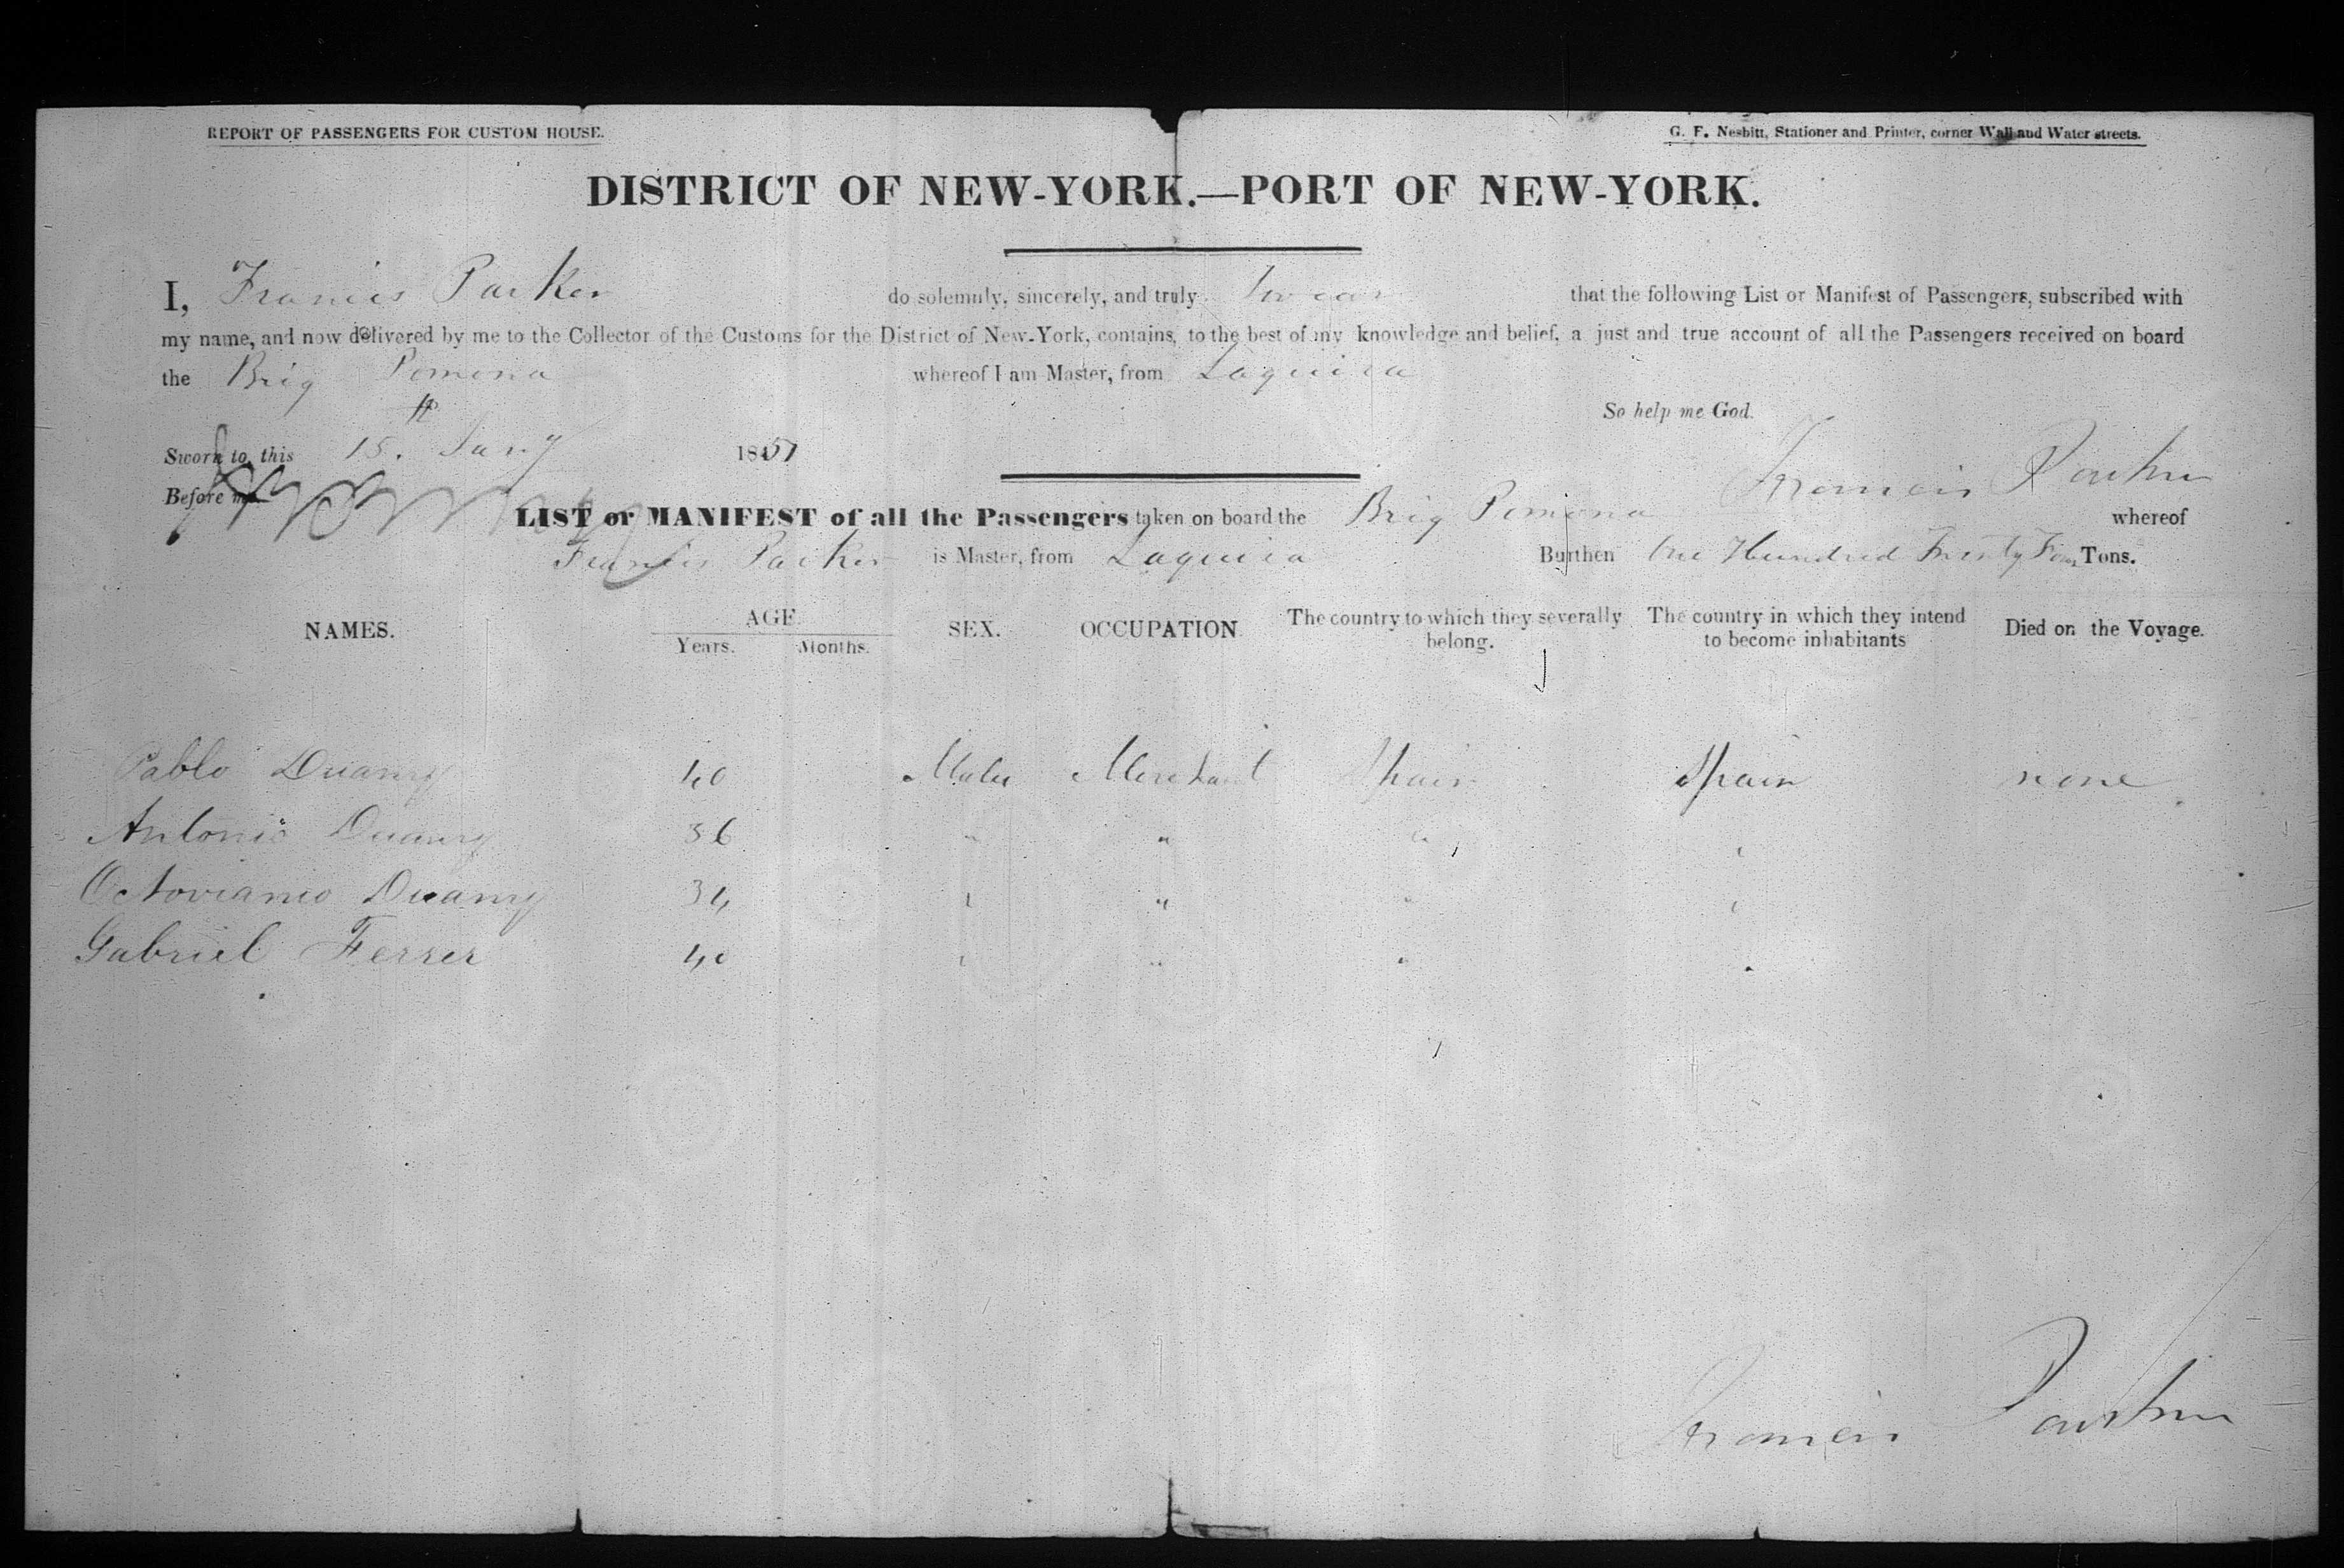 REPORT OF PASSENGERS FOR CUSTOM HOUSE.
G. F. Nesbitt, Stationer and Printer, corner Wall and Water streets.
DISTRICT OF NEW-YORK.—PORT OF NEW-YORK.
I, Francis Parker do solemnly, sincerely, and truly Swear that the following List or Manifest of Passengers, subscribed with
my name, and now delivered by me to the Collector of the Customs for the District of New-York, contains, to the best of my knowledge and belief, a just and true account of all the Passengers received on board
the Brig Pomona whereof I am Master, from Laguira
So help me God.
Sworn to, this 15th Jany 1851
Francis Parker
Before me
LIST or MANIFEST of all the Passengers taken on board the Brig Pomona whereof
Francis Parker is Master, from Laguira Burthen One Hundred Twenty Four Tons.
NAMES. AGE. Years. Months. SEX. OCCUPATION The country to which they severally belong. The country in which they intend to become inhabitants Died on the Voyage.
Pablo Duany 40 Male Merchant Spain Spain none
Antonio Duany 36 " " " "
Octoviano Duany 34 " " " "
Gabriel Ferrer 40 " " " "
Francis Parker